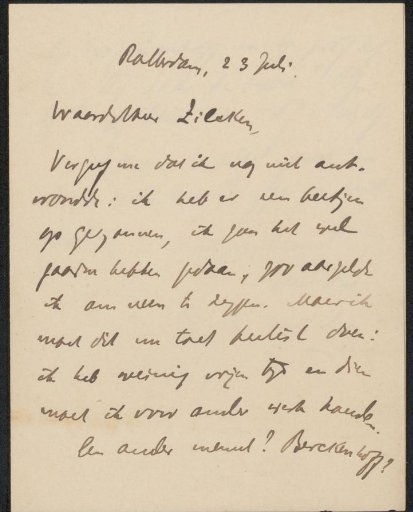 Rotterdam, 23 Juli.
Waarde Heer Zilcken,
Vergeef me dat ik nog niet ant-
woordde: ik heb er een beetje
op gezonnen, ik zou het wel
gaarne hebben gedaan, zoo aarzelde
ik om neen te zeggen. Maar ik
moet dit nu toch beslist doen:
ik heb weinig vrijen tijd en dien
moet ik voor ander werk houden.
Een ander memel? Berckenhoff?